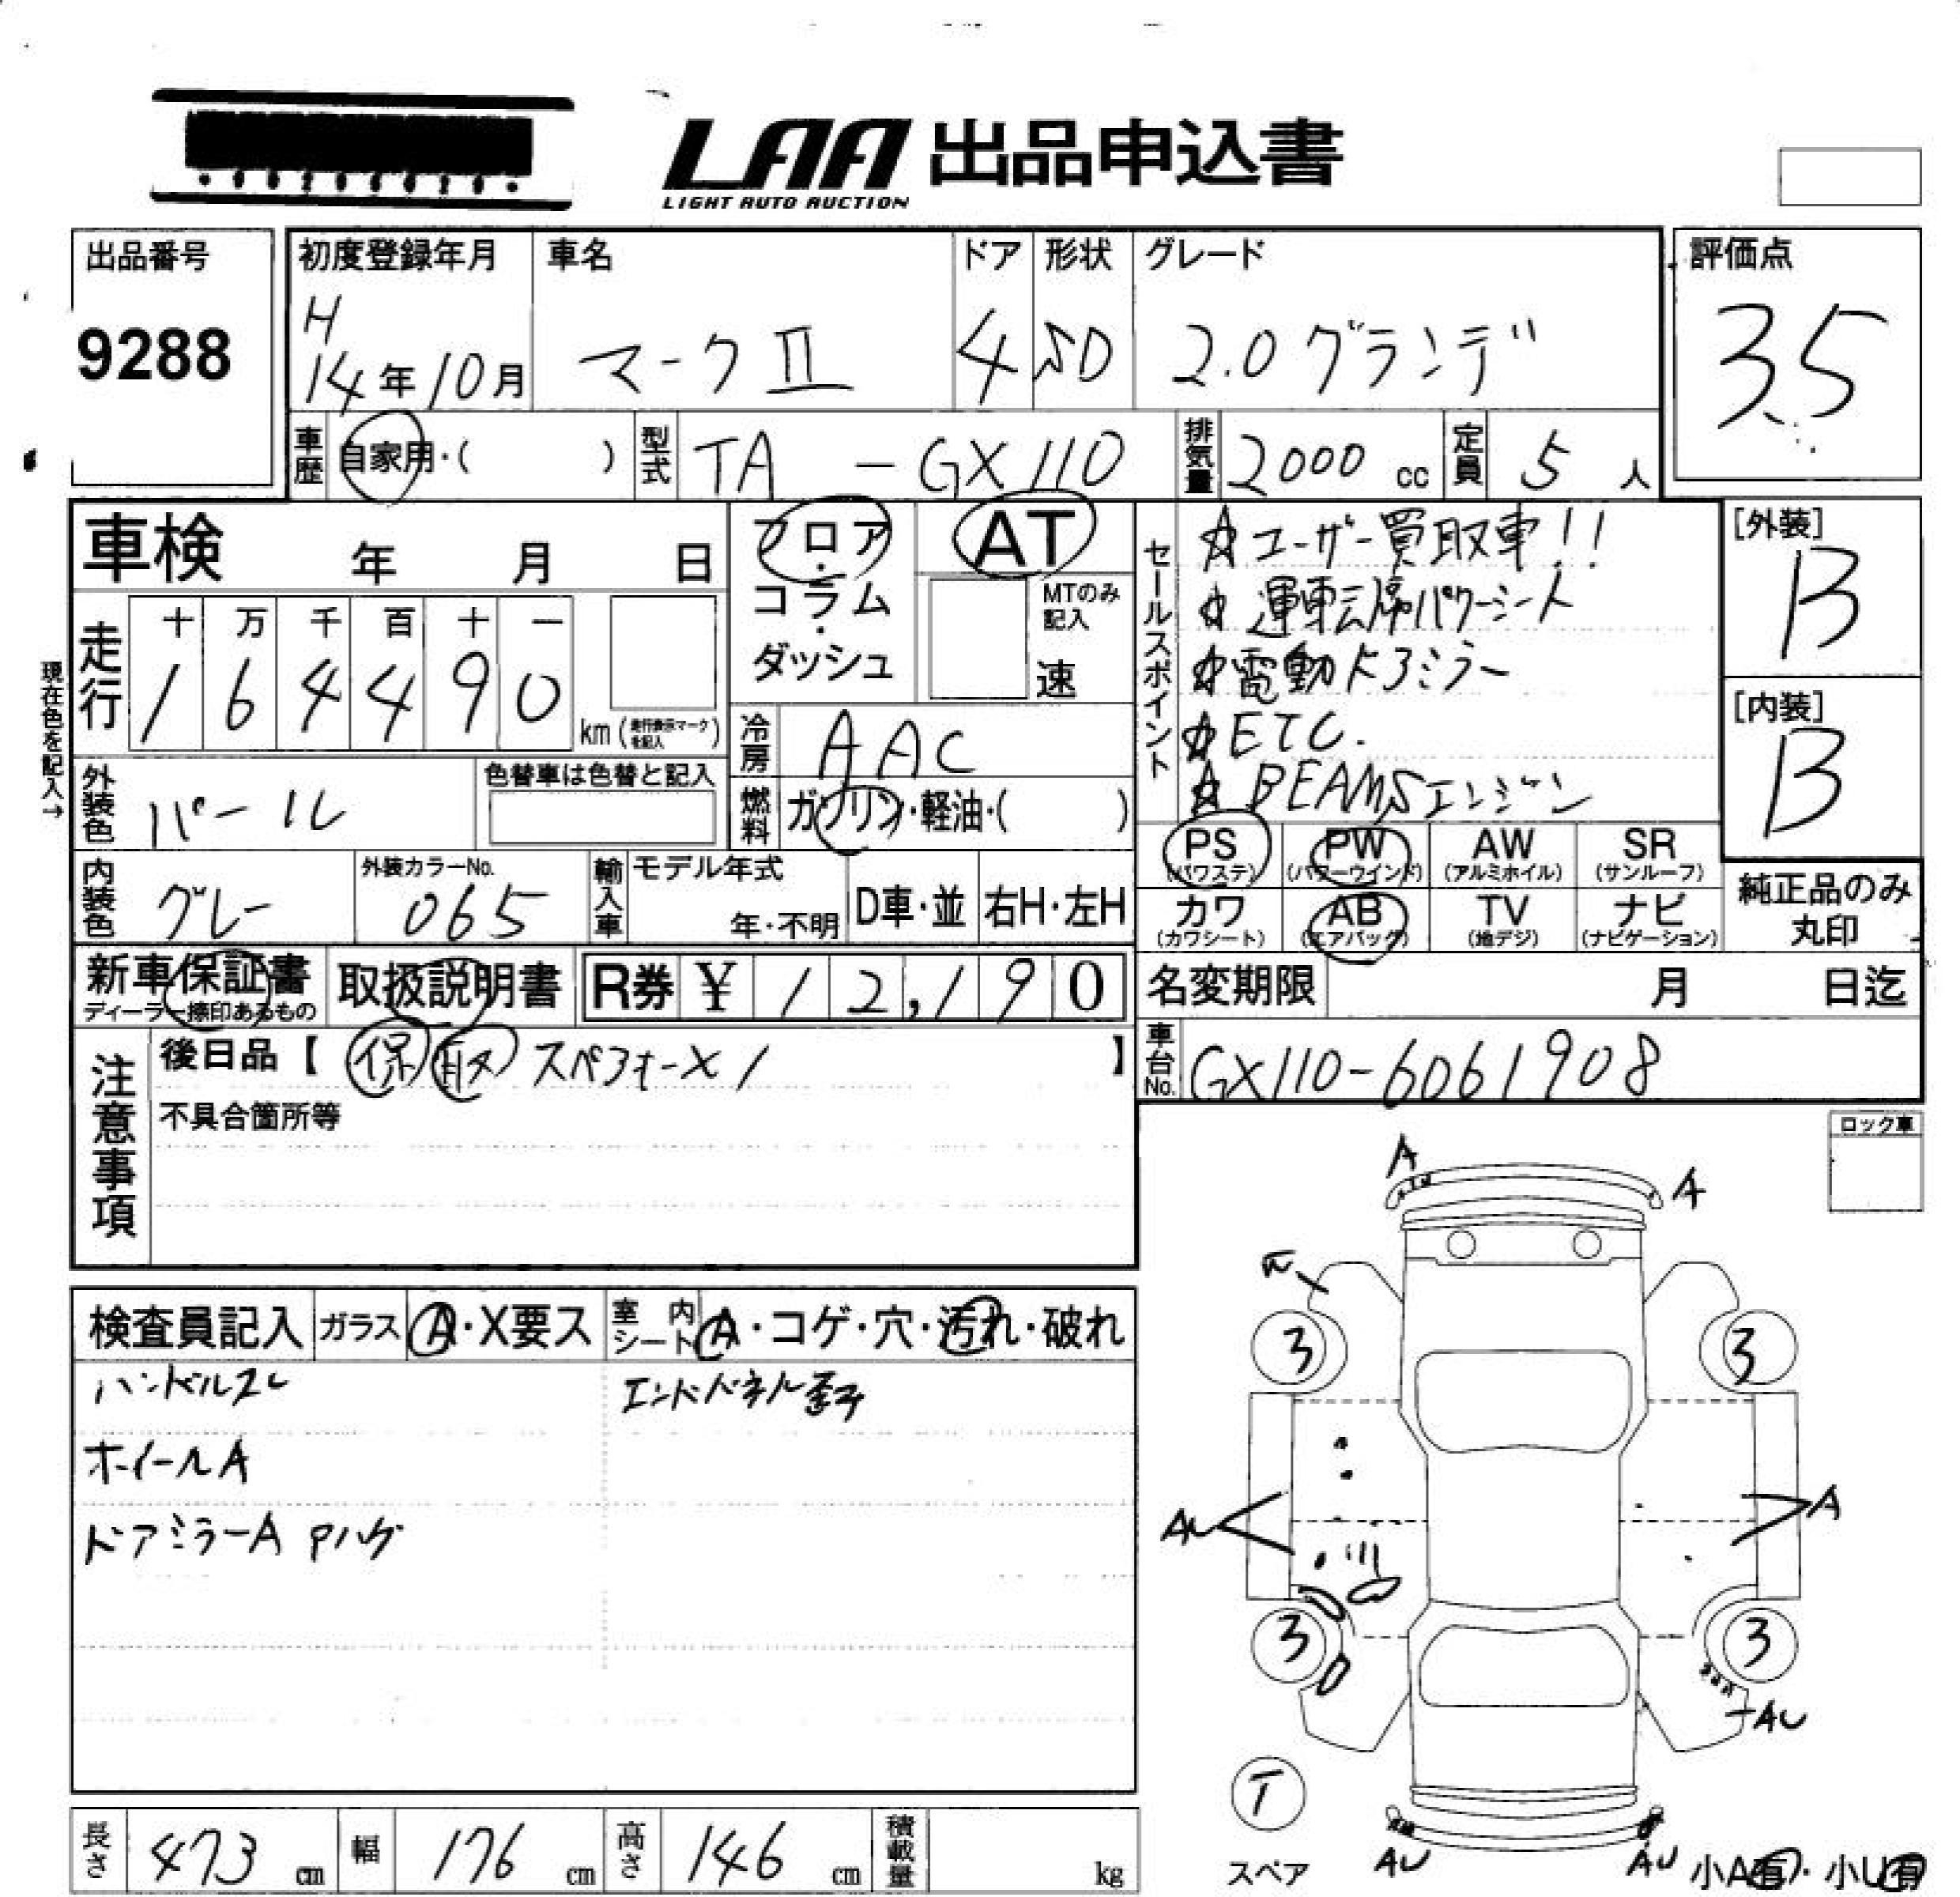 LAA 出品申込書
LIGHT AUTO AUCTION
出品番号
9288
初度登録年月
H
14年10月
車名
マークⅡ
ドア
4
形状
SD
グレード
2.0グランデ
評価点
3.5
車歴 自家用・( )
型式 TA - GX110
排気量 2000 cc
定員 5 人
車検 年 月 日
フロア・コラム・ダッシュ
AT
MTのみ記入
速
セールスポイント
☆ユーザー買取車!!
☆運転席パワーシート
☆電動ドアミラー
☆ETC.
☆BEAMSエンジン
[外装]
B
[内装]
B
現在色を記入→
走行
十 万 千 百 十 一
1 6 4 4 9 0 km (走行表示マークを記入)
冷房 AAC
外装色 パール
色替車は色替と記入
燃料 ガソリン・軽油・( )
PS (パワステ)
PW (パワーウインド)
AW (アルミホイル)
SR (サンルーフ)
カワ (カワシート)
AB (エアバック)
TV (地デジ)
ナビ (ナビゲーション)
純正品のみ丸印
内装色 グレー
外装カラーNo.
065
輸入車
モデル年式
年・不明
D車・並
右H・左H
新車保証書
ディーラー捺印あるもの
取扱説明書
R券 ¥ 12,190
名変期限 月 日迄
注意事項
後日品【 保 取 スペアキー×1 】
不具合箇所等
車台No. GX110-6061908
ロック車
検査員記入
ガラス A・X要ス
室内シート A・コゲ・穴・汚れ・破れ
ハンドルスレ
エンドパネル歪み
ホイールA
ドアミラーA Pハゲ
A
A
3
3
AU
A
3
3
AU
T
スペア
AU
AU
小A有・小U有
長さ 473 cm
幅 176 cm
高さ 146 cm
積載量 kg